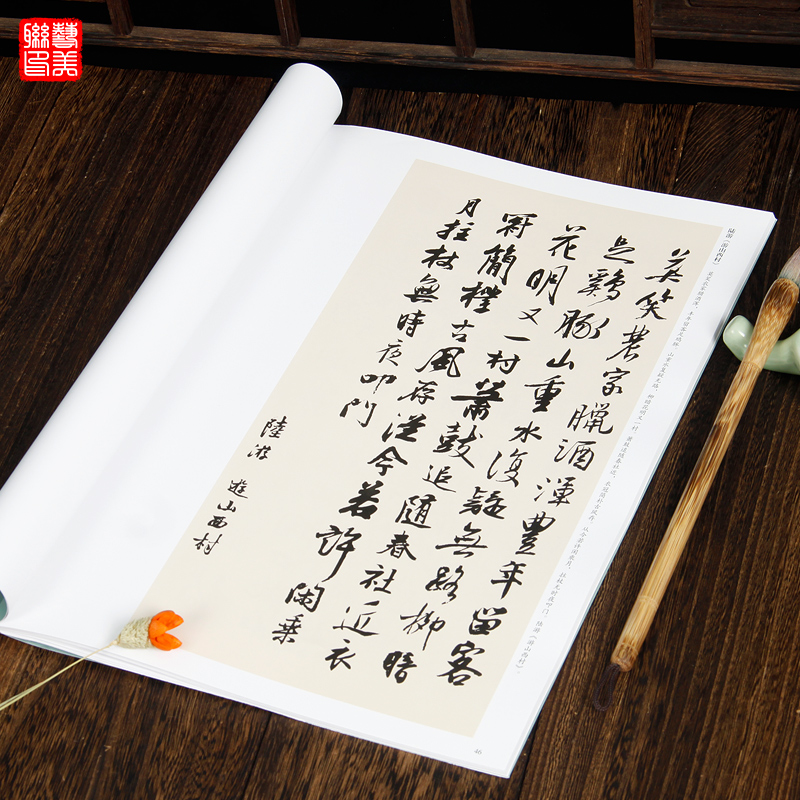 藝美
聯
陆游《游山西村》
莫笑农家腊酒浑，丰年留客足鸡豚。山重水复疑无路，柳暗花明又一村。箫鼓追随春社近，衣冠简朴古风存。从今若许闲乘月，拄杖无时夜叩门。陆游《游山西村》。
莫笑農家臘酒渾豐年留客
足鷄豚山重水復疑無路柳暗
花明又一村簫鼓追隨春社近衣
冠簡樸古風存從今若許閑乘
月拄杖無時夜叩門
陸游 遊山西村
46